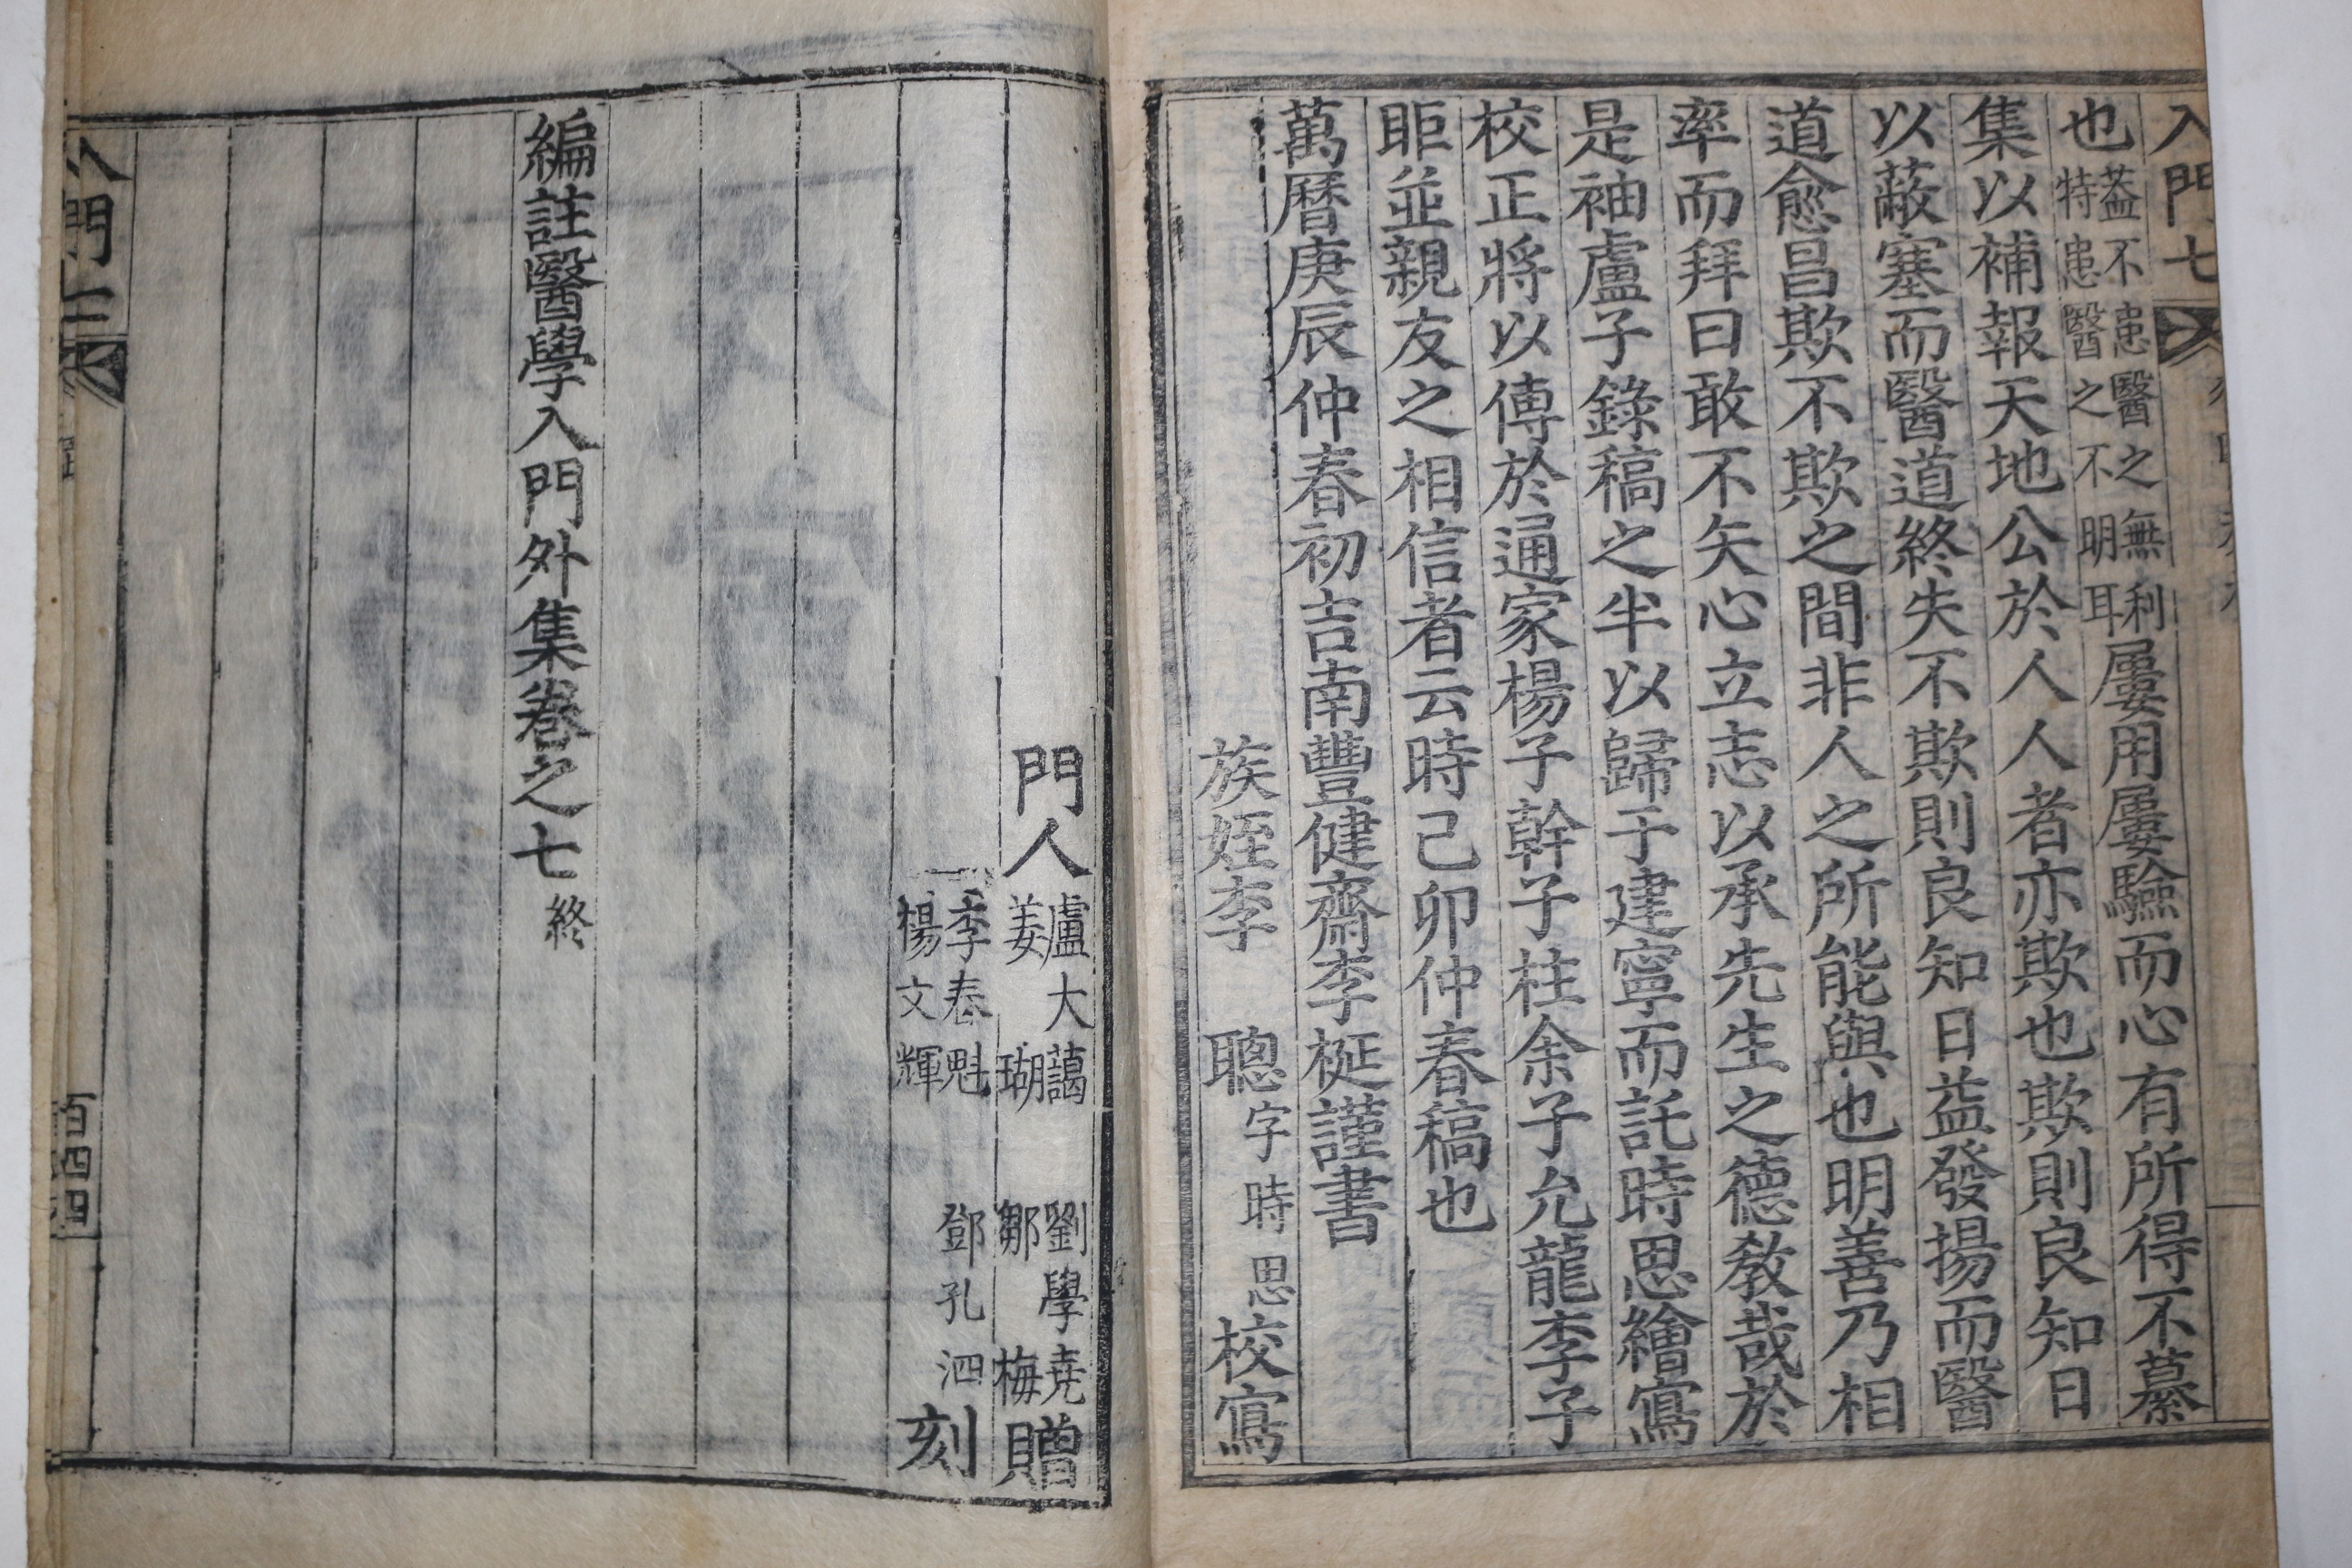 入門七
也蓋不患醫之無利特患醫之不明耳屢用屢驗而心有所得不纂
集以補報天地公於人人者亦欺也欺則良知日
以蔽塞而醫道終失不欺則良知日益發揚而醫
道愈昌欺不欺之間非人之所能與也明善乃相
率而拜曰敢不矢心立志以承先生之德教哉於
是袖盧子錄稿之半以歸于建寧而託時思繪寫
校正將以傳於通家楊子幹子柱余子允龍李子
昛並親友之相信者云時己卯仲春稿也
萬曆庚辰仲春初吉南豐健齋李梴謹書
族姪李聰字時思校寫
門人盧大藹姜瑚劉學堯鄒梅贈
李春魁楊文輝鄧孔泗刻
編註醫學入門外集卷之七終
入門
百四四